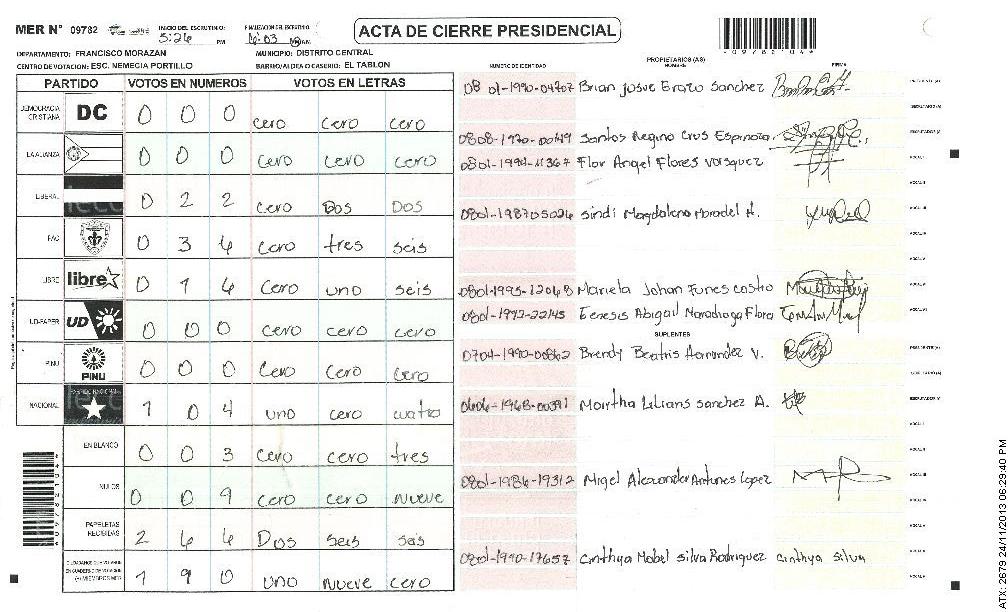 MER N° 09782 INICIO DEL ESCRUTINIO: 5:26 PM FINALIZACION DEL ESCRUTINIO 6:03
ACTA DE CIERRE PRESIDENCIAL
DEPARTAMENTO: FRANCISCO MORAZAN MUNICIPIO: DISTRITO CENTRAL
CENTRO DE VOTACION: ESC. NEMECIA PORTILLO BARRIO/ALDEA O CASERIO: EL TABLON
PARTIDO VOTOS EN NUMEROS VOTOS EN LETRAS
DEMOCRACIA CRISTIANA DC 0 0 0 cero cero cero
LA ALIANZA 0 0 0 cero cero cero
LIBERAL 0 2 2 cero Dos Dos
PAC 0 3 6 cero tres seis
LIBRE libre 0 1 6 cero uno seis
UD-FAPER UD 0 0 0 cero cero cero
PINU PINU 0 0 0 cero cero cero
NACIONAL 1 0 4 uno cero cuatro
EN BLANCO 0 0 3 cero cero tres
NULOS 0 0 9 cero cero nueve
PAPELETAS RECIBIDAS 2 6 6 Dos seis seis
1 9 0 uno nueve cero
NUMERO DE IDENTIDAD PROPIETARIOS (AS) NOMBRE FIRMA
*09782104*
0801-1990-04707 Brian Josue Erazo Sanchez
0808-1970-00149 Santos Regino Crus Espinoza
Flor Angel Flores Vasquez
Sindi Magdalena
0801-1995-12068 Mariela Johan Funes castro
0801-1992-22145 Abigail Flora
SUPLENTES
0704-1990-00862 Brendy Beatris V.
Martha Lilians sanchez A.
0801-1986-19312 Migel Alexander Antunes Lopez
0801-1990-17657 Cinthya Mabel Silva Rodriguez cinthya silva
ATX: 2679 24/11/2013 06:29:40 PM